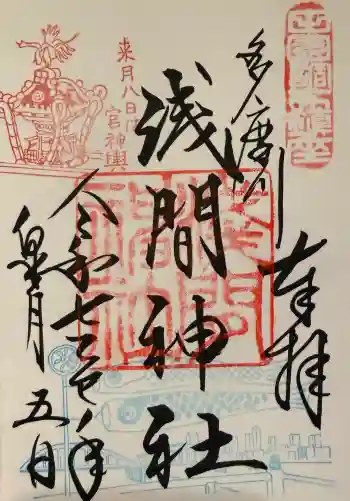 奉拝
多摩川
浅間神社
来月八日は
宮神輿
令和七年
皐月
五日